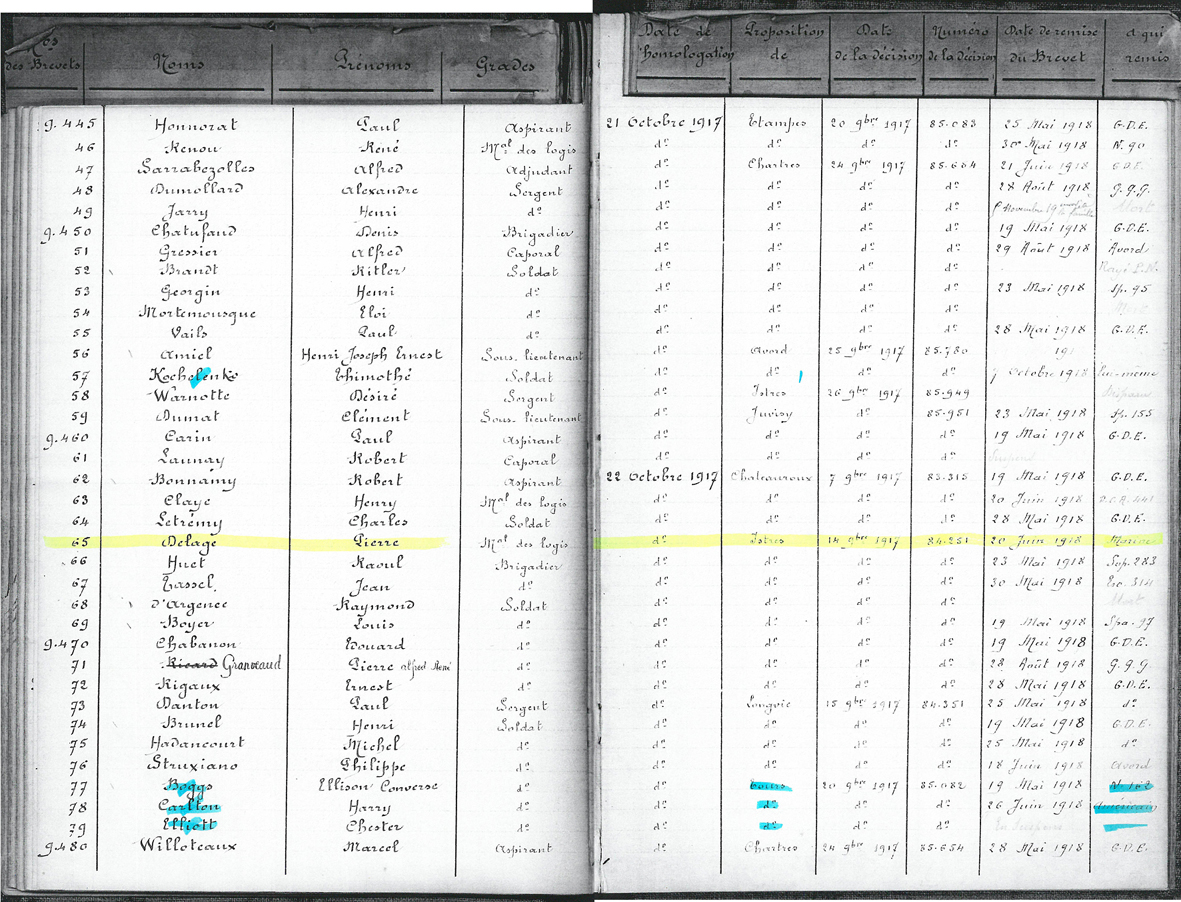 Nos des Brevets Noms Prénoms Grades Date de l'homologation Proposition de Date de la décision Numéro de la décision Date de remise du Brevet à qui remis
9.445 Honnorat Paul Aspirant 21 Octobre 1917 Etampes 20 9bre 1917 85.083 25 Mai 1918 G.D.E.
46 Renou René Mal des logis do do do do 30 Mai 1918 N. 90
47 Sarrabezolles Alfred Adjudant do Chartres 24 9bre 1917 85.654 21 Juin 1918 G.D.E.
48 Dumollard Alexandre Sergent do do do do 28 Août 1918 G.Q.G.
49 Jarry Henri do do do do do Novembre 19 Mort
9.450 Chatufaud Denis Brigadier do do do do 19 Mai 1918 G.D.E.
51 Gressier Alfred Caporal do do do do 29 Août 1918 Avord
52 Brandt Ritler Soldat do do do do Rayé
53 Georgin Henri do do do do do 23 Mai 1918 Sp. 95
54 Mortemousque Eloi do do do do do Mort
55 Vails Paul do do do do do 28 Mai 1918 G.D.E.
56 Amiel Henri Joseph Ernest Sous-lieutenant do Avord 25 9bre 1917 85.780 191
57 Kochelenko Thimothé Soldat do do do do 7 Octobre 1918 lui-même
58 Warnotte Désiré Sergent do Istres 26 9bre 1917 85.949
59 Dumat Clément Sous-lieutenant do Juvisy do 85.951 23 Mai 1918 Sp. 155
9.460 Carin Paul Aspirant do do do do 19 Mai 1918 G.D.E.
61 Launay Robert Caporal do do do do
62 Bonnamy Robert Aspirant 22 Octobre 1917 Chateauroux 7 9bre 1917 83.315 19 Mai 1918 G.D.E.
63 Claye Henry Mal des logis do do do do 20 Juin 1918
64 Letrémy Charles Soldat do do do do 28 Mai 1918 G.D.E.
65 Delage Pierre Mal des logis do Istres 14 9bre 1917 84.251 20 Juin 1918 Marine
66 Huet Raoul Brigadier do do do do 23 Mai 1918 Sop. 283
67 Tassel Jean do do do do do 30 Mai 1918 Esc. 314
68 d'Argence Raymond Soldat do do do do Mort
69 Boyer Louis do do do do do 19 Mai 1918 Spa. 97
9.470 Chabanon Edouard do do do do do 19 Mai 1918 G.D.E.
71 Ricard Granveaud Pierre alfred René do do do do do 28 Août 1918 G.Q.G.
72 Rigaux Ernest do do do do do 28 Mai 1918 G.D.E.
73 Danton Paul Sergent do Longvic 15 9bre 1917 84.351 25 Mai 1918 do
74 Brunel Henri Soldat do do do do 19 Mai 1918 G.D.E.
75 Hadancourt Michel do do do do do 25 Mai 1918 do
76 Struxiano Philippe do do do do do 18 Juin 1918 Avord
77 Boggs Ellison Converse do do Tours 20 9bre 1917 85.082 19 Mai 1918 N. 162
78 Carlton Harry do do do do do 26 Juin 1918 Américain
79 Elliott Chester do do do do do
9.480 Willoteaux Marcel Aspirant do Chartres 24 9bre 1917 85.654 28 Mai 1918 G.D.E.